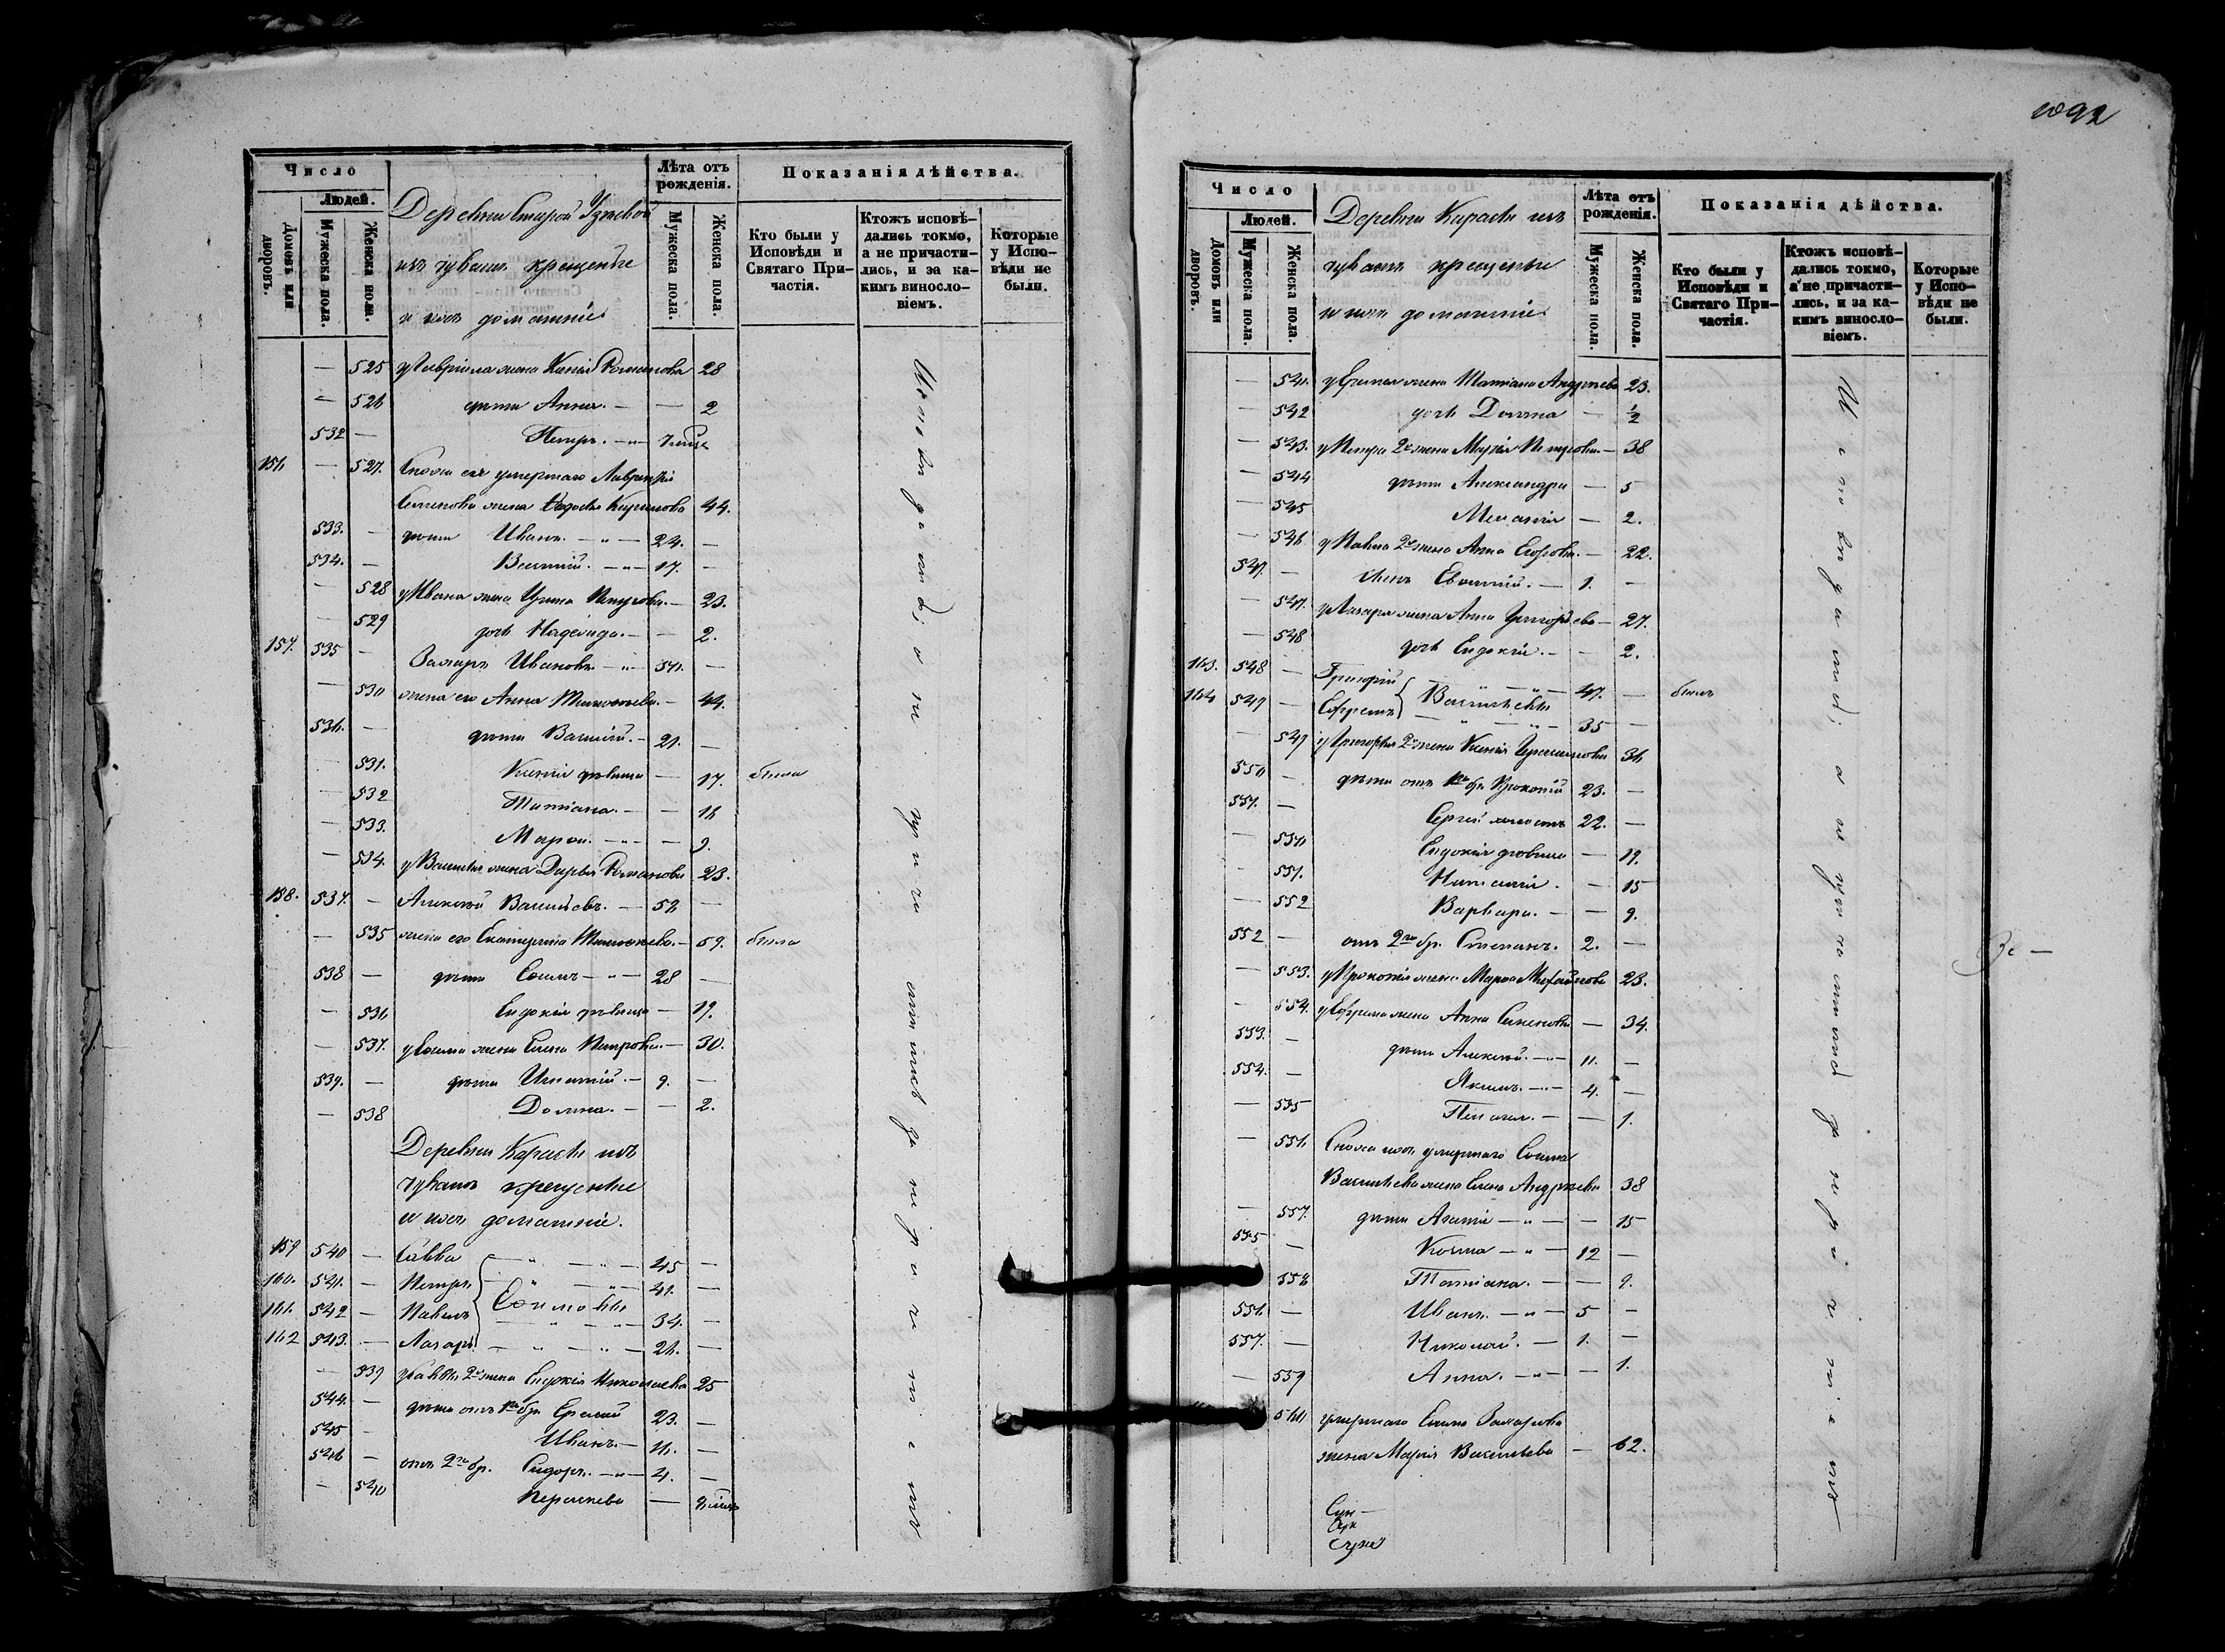 1092
Число
Людей.
Домовъ или дворовъ.
Мужеска пола.
Женска пола.
Деревни Старой Узеевой
изъ чувашъ крещеные
и ихъ домашніе
Лѣта отъ рожденія.
Мужеска пола.
Женска пола.
Показанія дѣйства.
Кто были у Исповѣди и Святаго Причастія.
Ктожъ исповѣдались токмо, а не причастились, и за какимъ винословіемъ.
Которые у Исповѣди не были.
— 525 у Гавріила жена Ксенія Романова 28
— 526 дѣти Анна. — — 2
532 — Петръ. —
156 — 527. Сноха его умершаго Лаврентія
Семенова жена Ѳедосья Кириллова 44.
533. — дѣти Иванъ. — 24. —
534. — Василій. — 17. —
— 528 у Ивана жена Ирина Петрова. — 23.
— 529 дочь Надежда. — — 2.
157. 535 — Захаръ Ивановъ — 56. —
— 530 жена его Анна Тимоѳеева. — 44.
536. — дѣти Василій. — 21. —
— 531. Ксенія дѣвица — 17. была
— 532 Татіана. — — 16
— 533. Марѳа. — — 9.
— 534. у Василья жена Дарья Романова 23.
158. 537. — Алексѣй Васильевъ. — 56 —
— 535 жена его Екатерина Тимоѳеева. — 59. была
538 — дѣти Еѳимъ — 28 —
— 536 Евдокія дѣвица — 19.
— 537. у Еѳима жена Елена Петрова. — 30.
539. — дѣти Игнатій. — 9. —
— 538 Домна. — — 2.
Деревни Карасъ изъ
чувашъ крещеные
и ихъ домашніе.
159 540 — Савва 45 —
160. 541. — Петръ 41. —
161 542 — Павелъ Еѳимовы 34. —
162 543. — Лазарь 26. —
— 539 у Саввы 2я жена Евдокія Николаева 25
544. — дѣти отъ 1го бр. Ермилъ 23. —
545 — Иванъ. — 11. —
546 — отъ 2го бр. Сидоръ. — 4. —
— 540 Параскева —
Исповѣдались; о
Число
Людей.
Домовъ или дворовъ.
Мужеска пола.
Женска пола.
Деревни Карасъ изъ
чувашъ крещеные
и ихъ домашніе
Лѣта отъ рожденія.
Мужеска пола.
Женска пола.
Показанія дѣйства.
Кто были у Исповѣди и Святаго Причастія.
Ктожъ исповѣдались токмо, а не причастились, и за какимъ винословіемъ.
Которые у Исповѣди не были.
— 541. у Ермила жена Татіана Андреева 23.
— 542 дочь Домна — ½
— 543. у Петра 2я жена Марія Петрова. — 38
— 544 дѣти Александра — 5
— 545 Меланія — 2.
— 546 у Павла 2я жена Анна Егорова. — 22.
547. — сынъ Евѳимій. — 1. —
— 547. у Лазаря жена Анна Григорьева — 27.
— 548 дочь Евдокія. — — 2.
163. 548 — Григорій 47. — былъ
164 549 — Ефремъ Васильевы 35 —
— 549 у Григорья 2я жена Ксенія 36
550 — дѣти отъ 1го бр. Прокопій 23. —
551. — Сергѣй холостъ 22. —
— 550 Евдокія дѣвица — 19.
— 551. Наталія. — 15
— 552 Варвара. — — 9.
552 — отъ 2го бр. Степанъ. 2. —
— 553. у Прокопія жена Марѳа Михайлова 23.
— 554. у Ефрема жена Анна Семенова — 34.
553. — дѣти Алексѣй. — 11. —
554. — Якимъ. — 4. —
— 555 Пелагея. — — 1.
— 556 Сноха ихъ умершаго Еѳима
Васильева жена Елена Андреева 38
— 557. дѣти Агаѳія — — 15
555 — Козма — 12 —
— 558 Татіана. — — 9.
556 — Иванъ. — 5 —
557. — Николай. — 1. —
— 559 Анна. — — 1.
560 умершаго Еѳима Захарова
жена Марія Васильева — 62.
Исповѣдались; а не